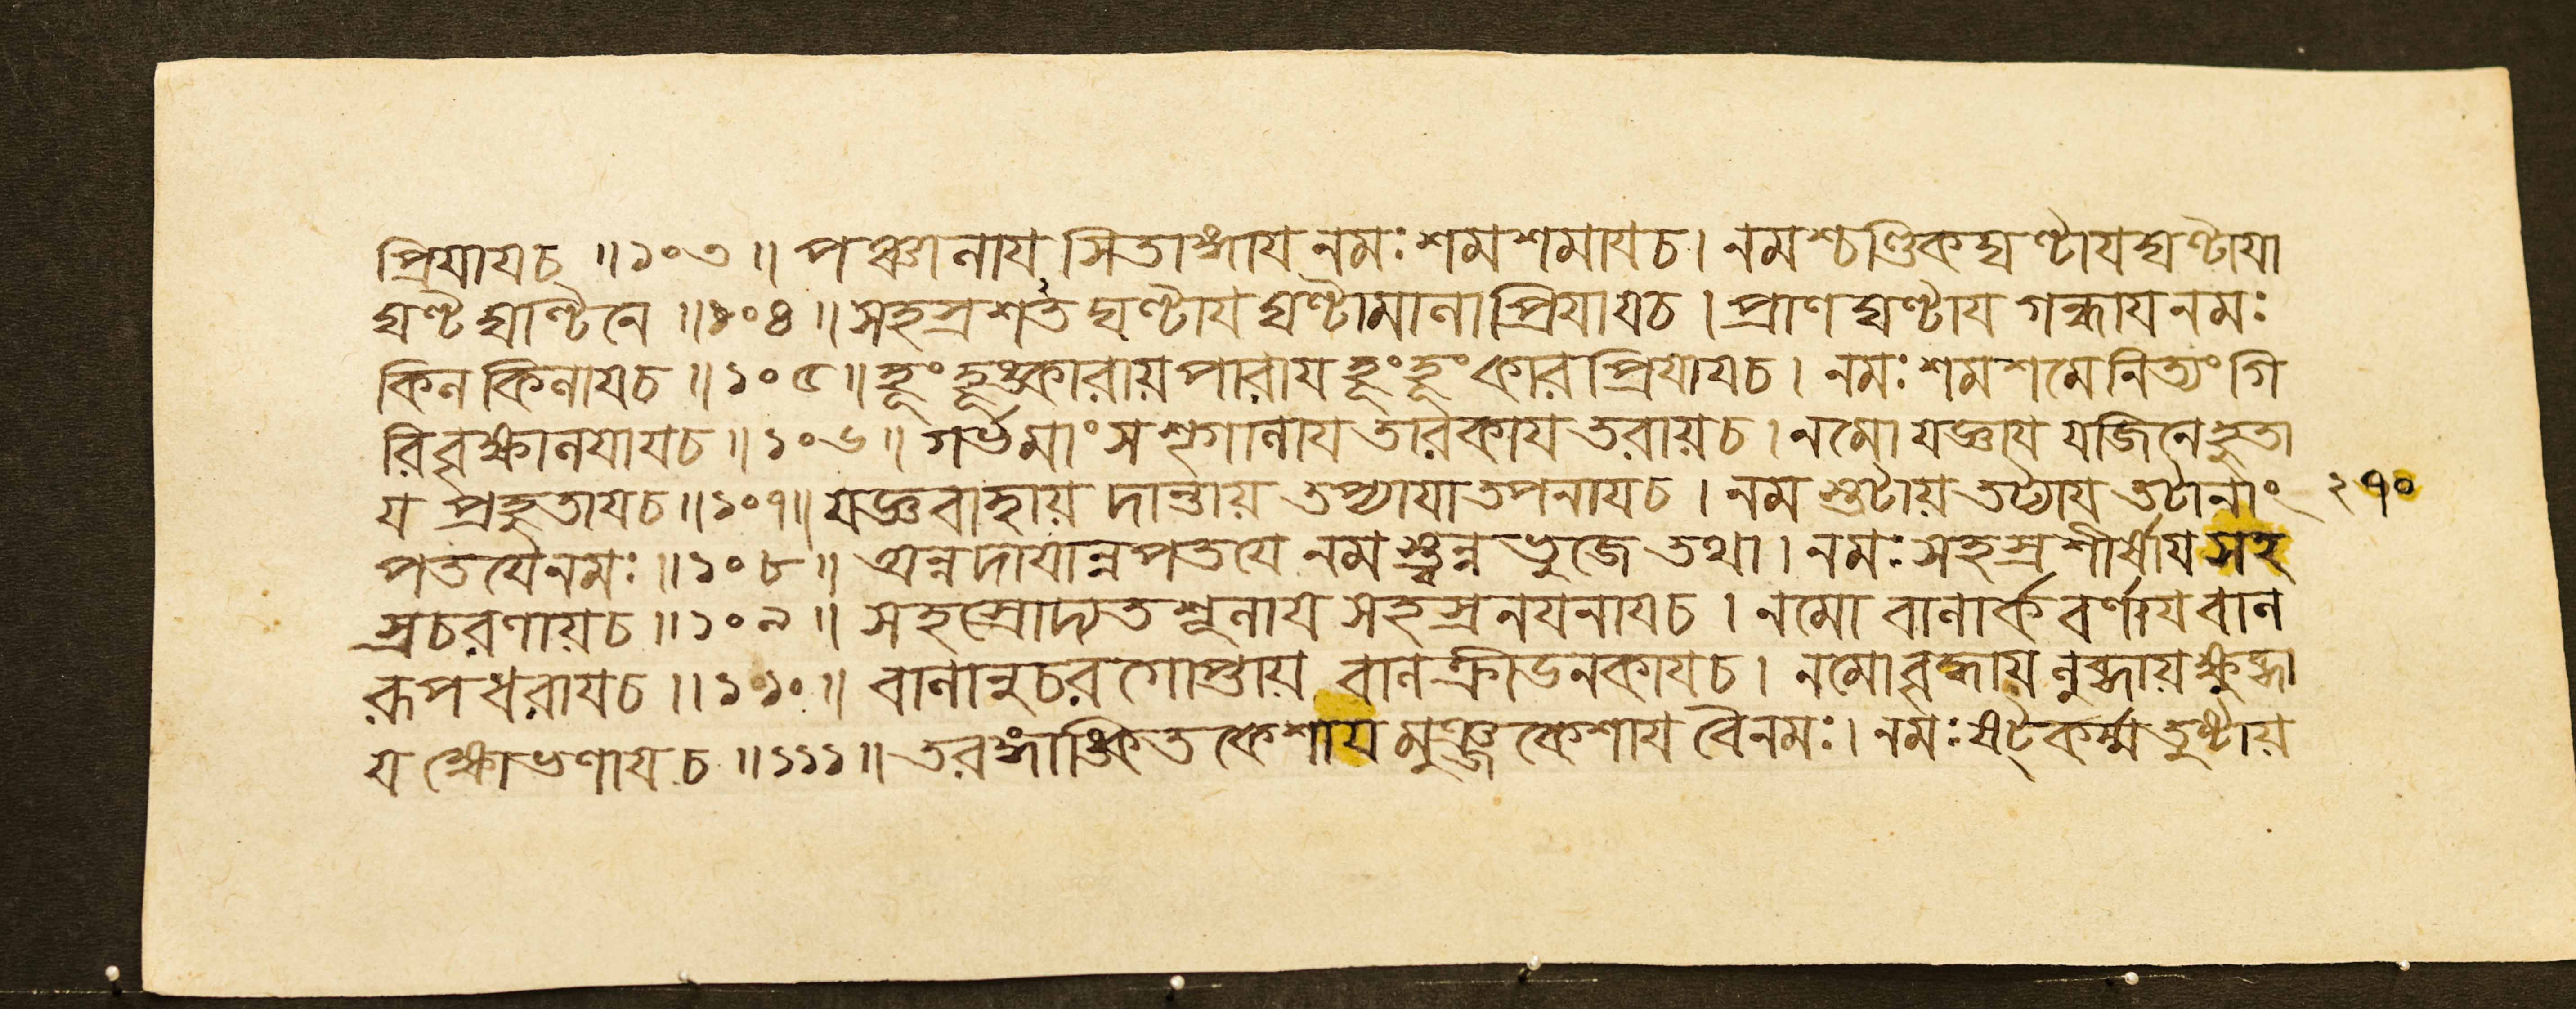 প্রিযাযচ ॥ ১০৩ ॥ পঞ্চানায সিতাঙ্গায নমঃ শমশমাযচ । নমশ্চণ্ডিকঘণ্টায ঘণ্টাযা
ঘণ্টঘাণ্টিনে ॥ ১০৪ ॥ সহস্রশত ঘণ্টায ঘণ্টামানা প্রিযাযচ । প্রাণ ঘণ্টায গন্ধায নমঃ
কিন কিনাযচ ॥ ১০৫ ॥ হূং হূঙ্কারায় পারায হূং হূং কার প্রিযাযচ । নমঃ শমশমে নিত্যং গি
রিবৃক্ষানযাযচ ॥ ১০৬ ॥ গর্ভমাংস শৃগানায তারকায তরায়চ । নমো যজ্ঞায যজিনে হুতা
য প্রহুতাযচ ॥ ১০৭ ॥ যজ্ঞবাহায় দান্তায় তপ্যাযাতপনাযচ । নমস্তটায় তট্যায তটানাং ২৭০
পতযেনমঃ ॥ ১০৮ ॥ অন্নদাযান্নপতযে নমস্ত্বন্নভুজে তথা । নমঃ সহস্রশীর্ষায সহ
স্রচরণায়চ ॥ ১০৯ ॥ সহস্রোদ্যতশূনায সহস্রনযনাযচ । নমো বানার্ক বর্ণায বান
রূপধরাযচ ॥ ১১০ ॥ বানানুচর গোপ্তায় বানক্রীডনকাযচ । নমো বৃদ্ধায় নুব্ধায় ক্ষুব্ধা
য ক্ষোভণাযচ ॥ ১১১ ॥ তরঙ্গাঙ্কিত কেশায মুঞ্জকেশায বৈনমঃ । নমঃ ষট্কর্ম্ম তুষ্টায়